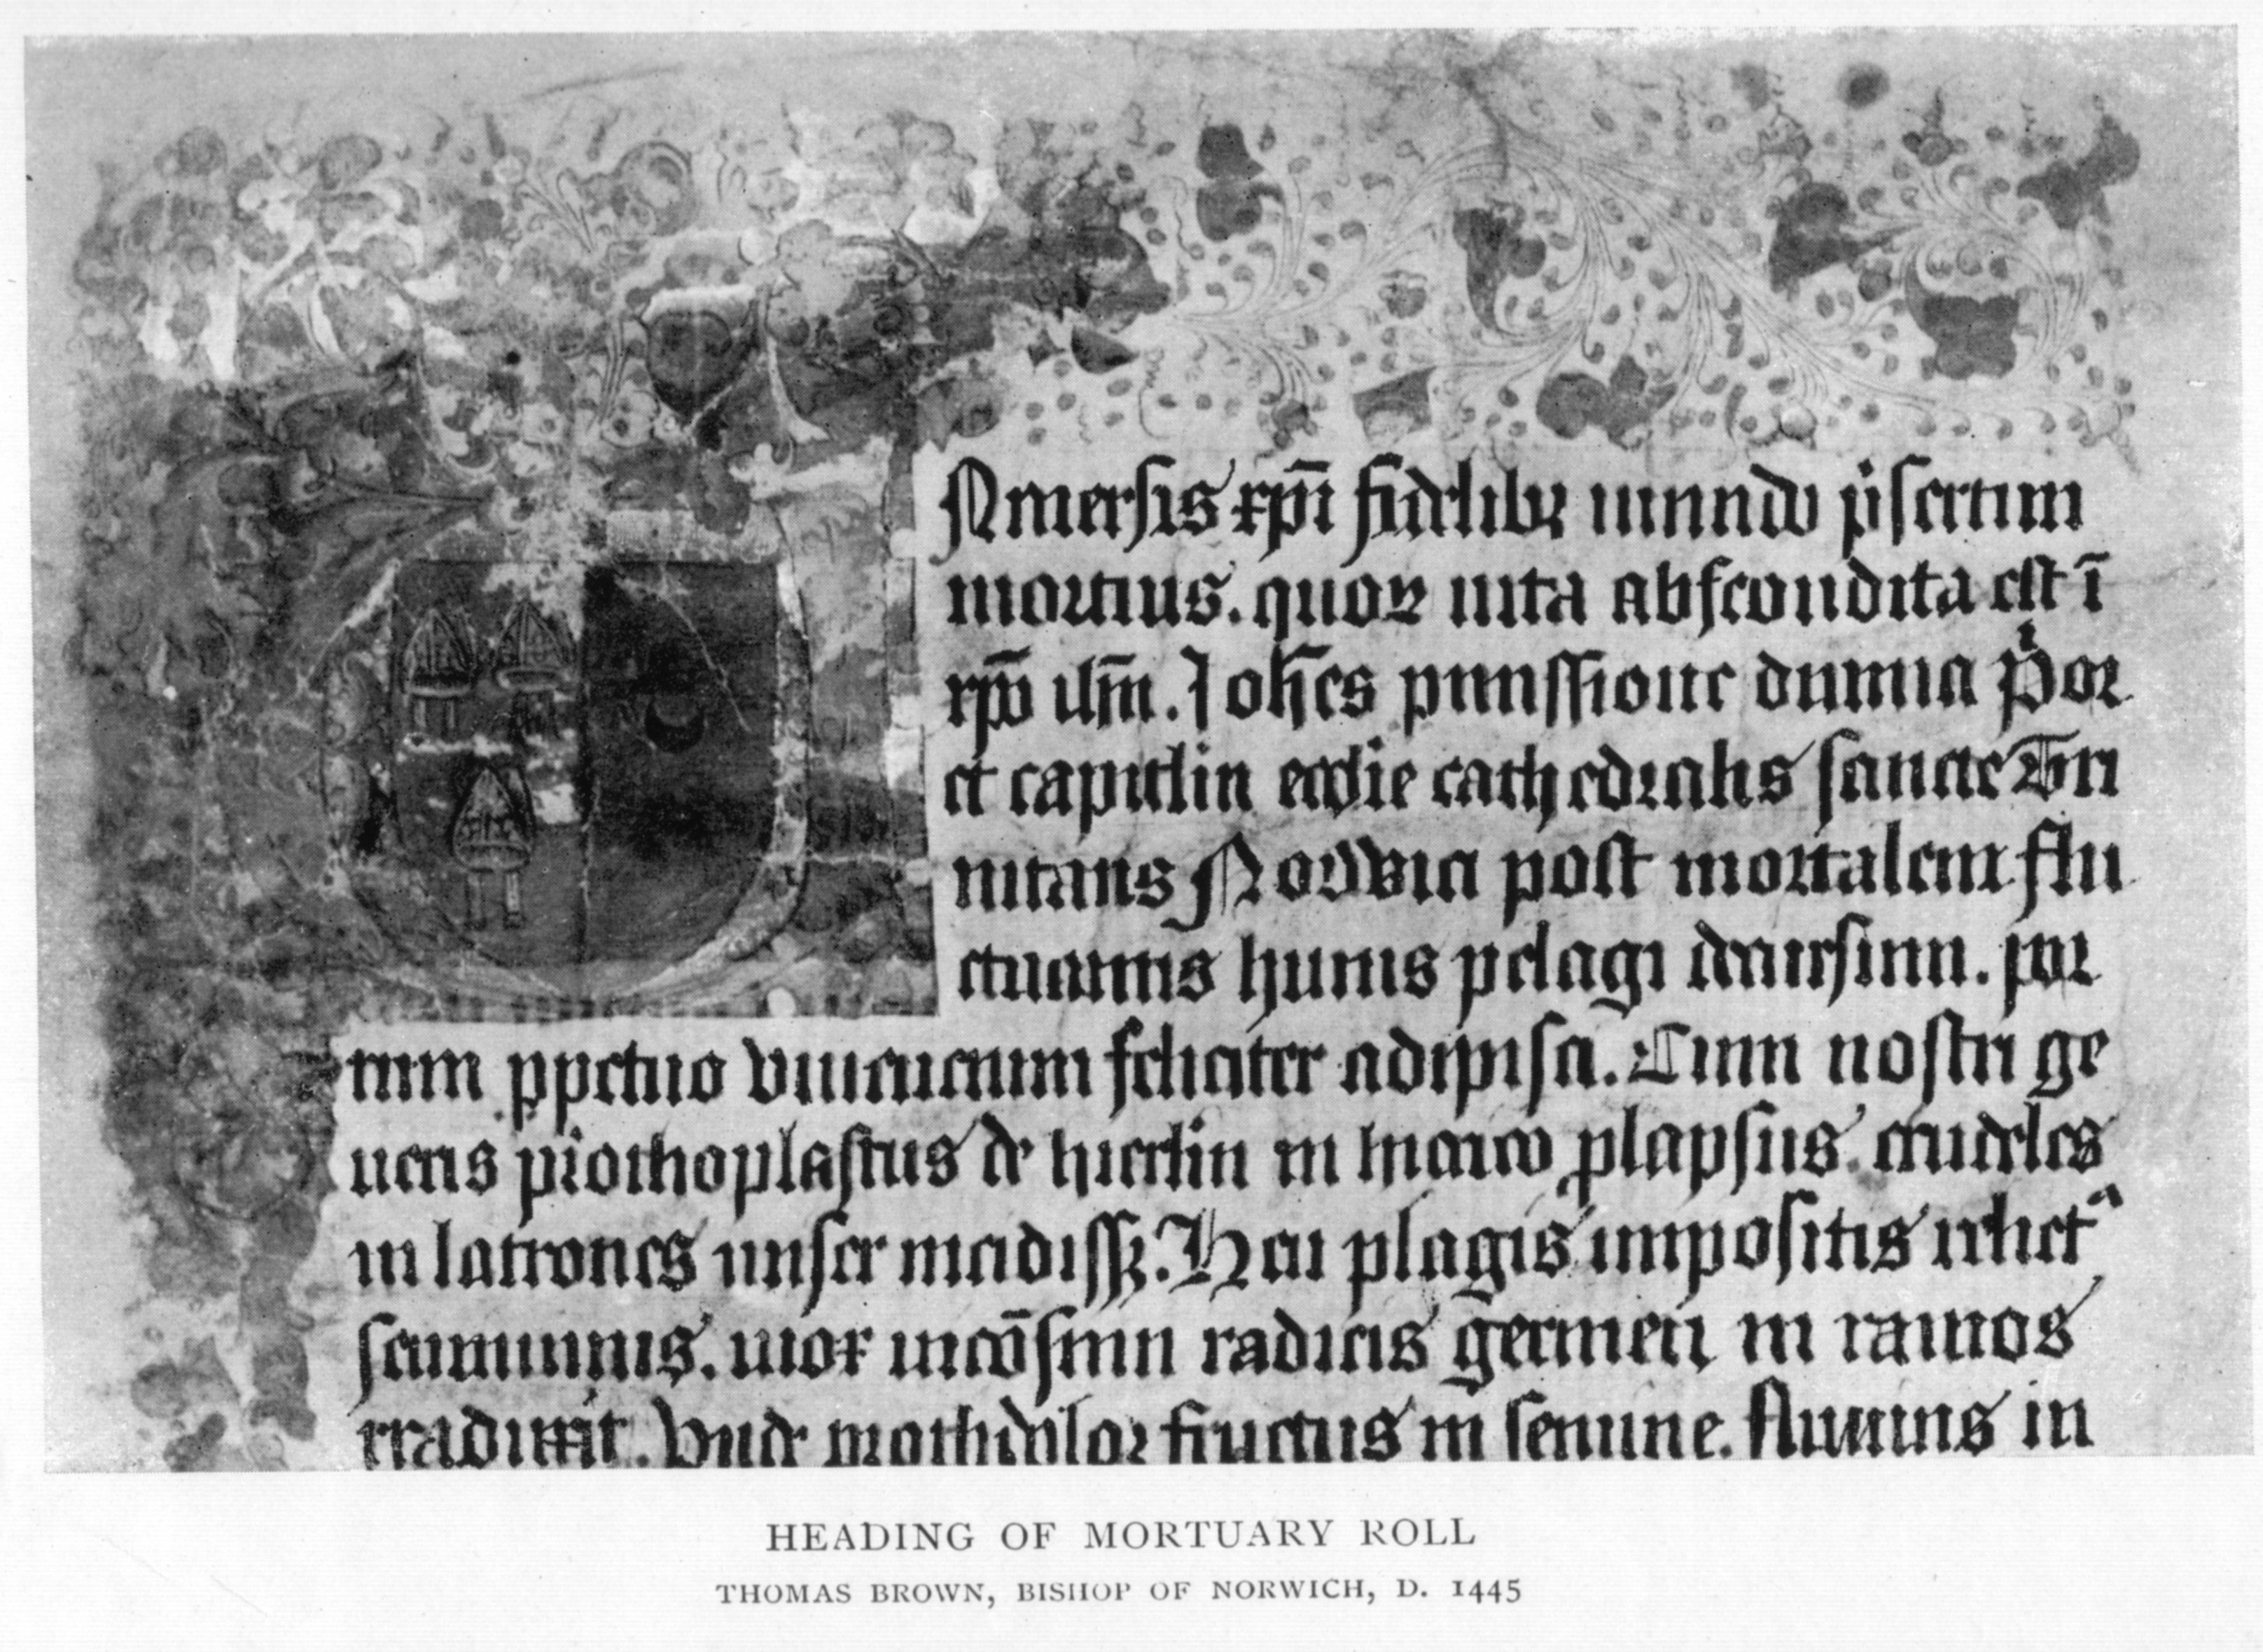 Niuersis xp̄i fidelibꝫ mundo p̉sertim
mortuis. quoꝝ uita abscondita est ī
xp̄o ih̄u. Joh̄es pmissione diuina P̉or
et capitulum ecclie cathedralis sancte Tri
nitatis Norwici post mortalem flu
ctuantis huius pelagi decursum. por
tum ppetuo viuencium feliciter adipisci. Cum nostri ge
neris prothoplastus de hierlm in plapsus. crudeles
in latrones miser incidissꝫ. Heu plagis impositis
mox radicis germen in ramos
traduxit. Vnde fructus in semine. in
HEADING OF MORTUARY ROLL
THOMAS BROWN, BISHOP OF NORWICH, D. 1445